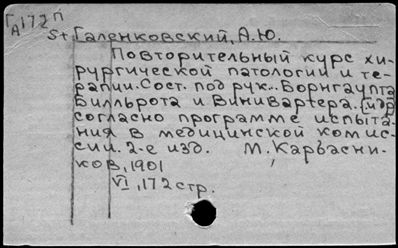 Г172п
А
St Галенковский, А.Ю.
Повторительный курс хи-
рургической патологии и те-
рапии. Сост. под рук... Борнгаупта
Билльрота и Винивартера. [и др.
согласно программе испыта-
ния в медицинской комис-
сии. 2-е изд. М. Карбасни-
ков, 1901
VI, 172 стр.